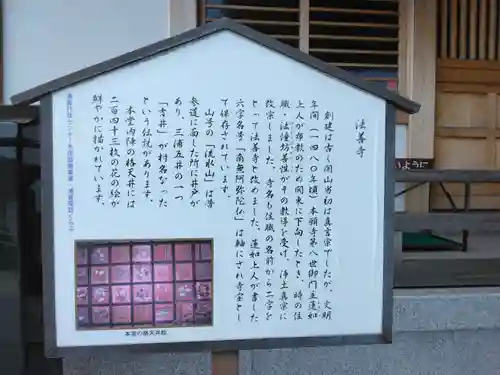 法善寺
創建は古く開山当初は真言宗でしたが、文明
年間（一四八〇年頃）本願寺第八世御門主蓮如
上人が布教のため関東に下向したとき、時の住
職・法憧坊善性がその教導を受け、浄土真宗に
改宗しました。寺名も住職の名前から二字を
とって法善寺と改めました。蓮如上人が書した
六字名号「南無阿弥陀仏」は軸にされ寺宝とし
て保存されています。
山号の「流水山」は昔
参道に面した所に井戸が
あり、三浦五井の一つ
「吉井」が村名となった
という伝説があります。
本堂内陣の格天井には
二百四十三枚の花の絵が
鮮やかに描かれています。
本堂の格天井絵